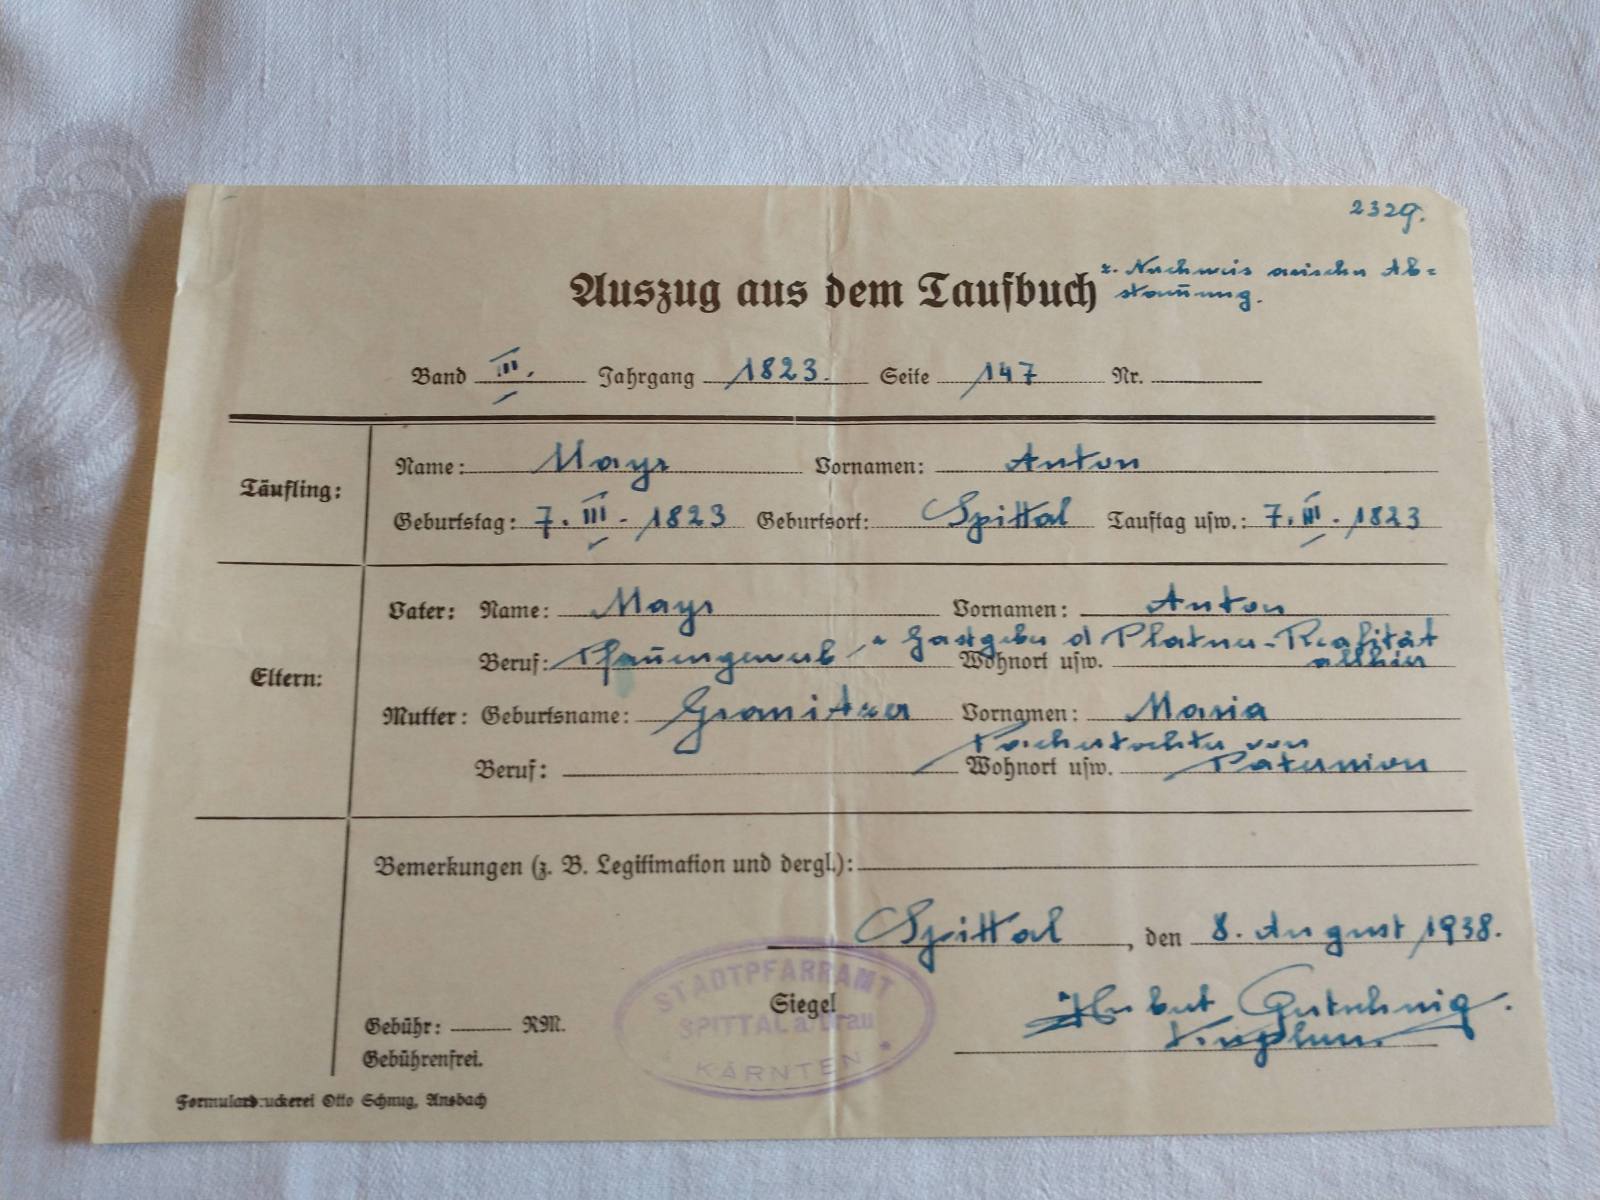 2329.
Auszug aus dem Taufbuch z. Nachweis arischer Ab=
stam̄ung.
Band III. Jahrgang 1823. Seite 147 Nr.
Täufling:
Name: Mayr Vornamen: Anton
Geburtstag: 7. III. 1823 Geburtsort: Spittal Tauftag usw.: 7. III. 1823
Eltern:
Vater: Name: Mayr Vornamen: Anton
Gastgeber d Platner-Realität
Beruf: Wohnort usw. allhier
Mutter: Geburtsname: Granitzer Vornamen: Maria
von
Beruf: Wohnort usw. Paternion
Bemerkungen (z. B. Legitimation und dergl.):
Spittal, den 8. August 1938.
STADTPFARRAMT
SPITTAL a. Drau
KÄRNTEN
Siegel
Gebühr: RM.
Gebührenfrei.
Formulardruckerei Otto Schnug, Ansbach